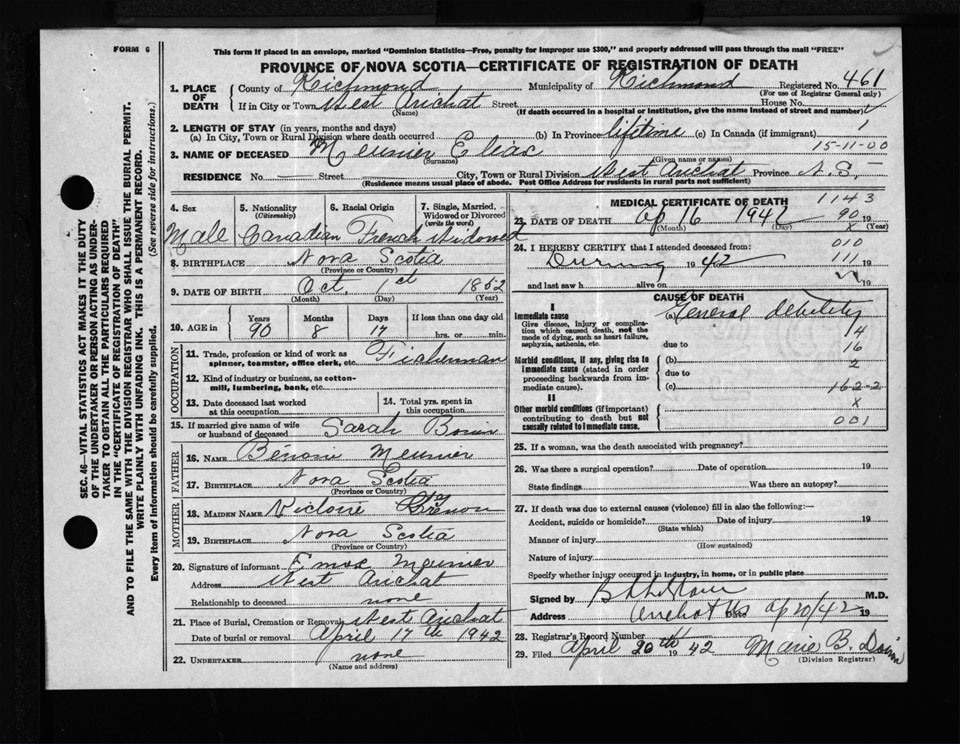 FORM 6
This form if placed in an envelope, marked "Dominion Statistics—Free, penalty for improper use $300," and properly addressed will pass through the mail "FREE"
PROVINCE OF NOVA SCOTIA—CERTIFICATE OF REGISTRATION OF DEATH
1. PLACE OF DEATH County of Richmond Municipality of Richmond Registered No. 461
(For use of Registrar General only)
If in City or Town West Arichat Street House No.
(Name) (If death occurred in a hospital or institution, give the name instead of street and number)
2. LENGTH OF STAY (in years, months and days)
(a) In City, Town or Rural Division where death occurred (b) In Province lifetime (c) In Canada (if immigrant) 1
15-11-00
3. NAME OF DECEASED Meunier Elias
(Surname) (Given name or names)
RESIDENCE No. — Street — City, Town or Rural Division West Arichat Province N.S.
(Residence means usual place of abode. Post Office Address for residents in rural parts not sufficient)
4. Sex Male
5. Nationality (Citizenship) Canadian
6. Racial Origin French
7. Single, Married, Widowed or Divorced (write the word) Widowed
8. BIRTHPLACE Nova Scotia
(Province or Country)
9. DATE OF BIRTH Oct. 1st 1852
(Month) (Day) (Year)
10. AGE in Years 90 Months 8 Days 17 If less than one day old hrs. or min.
OCCUPATION
11. Trade, profession or kind of work as spinner, teamster, office clerk, etc. Ficherman
12. Kind of industry or business, as cotton-mill, lumbering, bank, etc.
13. Date deceased last worked at this occupation
14. Total yrs. spent in this occupation
15. If married give name of wife or husband of deceased Sarah
FATHER
16. NAME Meunier
17. BIRTHPLACE Nova Scotia
(Province or Country)
MOTHER
18. MAIDEN NAME Victorie
19. BIRTHPLACE Nova Scotia
(Province or Country)
20. Signature of informant Meunier
Address West Arichat
Relationship to deceased none
21. Place of Burial, Cremation or Removal West Arichat
Date of burial or removal April 17th 1942
22. UNDERTAKER none
(Name and address)
MEDICAL CERTIFICATE OF DEATH 1143
23. DATE OF DEATH Ap 16 1942 90 19
(Month) (Day) X (Year)
24. I HEREBY CERTIFY that I attended deceased from: 010
During 1942 111 19
and last saw h alive on 19
CAUSE OF DEATH
I
Immediate cause (a) General debility
Give disease, injury or complication which caused death, not the mode of dying, such as heart failure, asphyxia, asthenia, etc.
4
due to 16
Morbid conditions, if any, giving rise to immediate cause (stated in order proceeding backwards from immediate cause).
(b) 2
due to
(c) 16-2-2
II
X
Other morbid conditions (if important) contributing to death but not causally related to immediate cause.
001
25. If a woman, was the death associated with pregnancy?
26. Was there a surgical operation? Date of operation 19
State findings Was there an autopsy?
27. If death was due to external causes (violence) fill in also the following:—
Accident, suicide or homicide? Date of injury 19
(State which)
Manner of injury
(How sustained)
Nature of injury
Specify whether injury occurred in industry, in home, or in public place
Signed by M.D.
Address Arichat NS Date Ap 20/42 19
28. Registrar's Record Number
29. Filed April 20th 1942 Marie B.
(Division Registrar)
SEC. 46—VITAL STATISTICS ACT MAKES IT THE DUTY
OF THE UNDERTAKER OR PERSON ACTING AS UNDER-
TAKER TO OBTAIN ALL THE PARTICULARS REQUIRED
IN THE "CERTIFICATE OF REGISTRATION OF DEATH"
AND TO FILE THE SAME WITH THE DIVISION REGISTRAR WHO SHALL ISSUE THE BURIAL PERMIT.
WRITE PLAINLY WITH UNFADING INK. THIS IS A PERMANENT RECORD.
Every item of information should be carefully supplied. (See reverse side for instructions.)